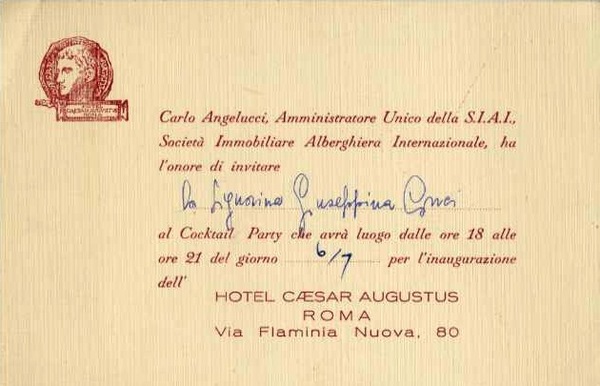 Carlo Angelucci, Amministratore Unico della S.I.A.I.,
Società Immobiliare Alberghiera Internazionale, ha
l'onore di invitare
la Signorina Giuseppina
al Cocktail Party che avrà luogo dalle ore 18 alle
ore 21 del giorno 6/7 per l'inaugurazione
dell'
HOTEL CÆSAR AUGUSTUS
ROMA
Via Flaminia Nuova, 80